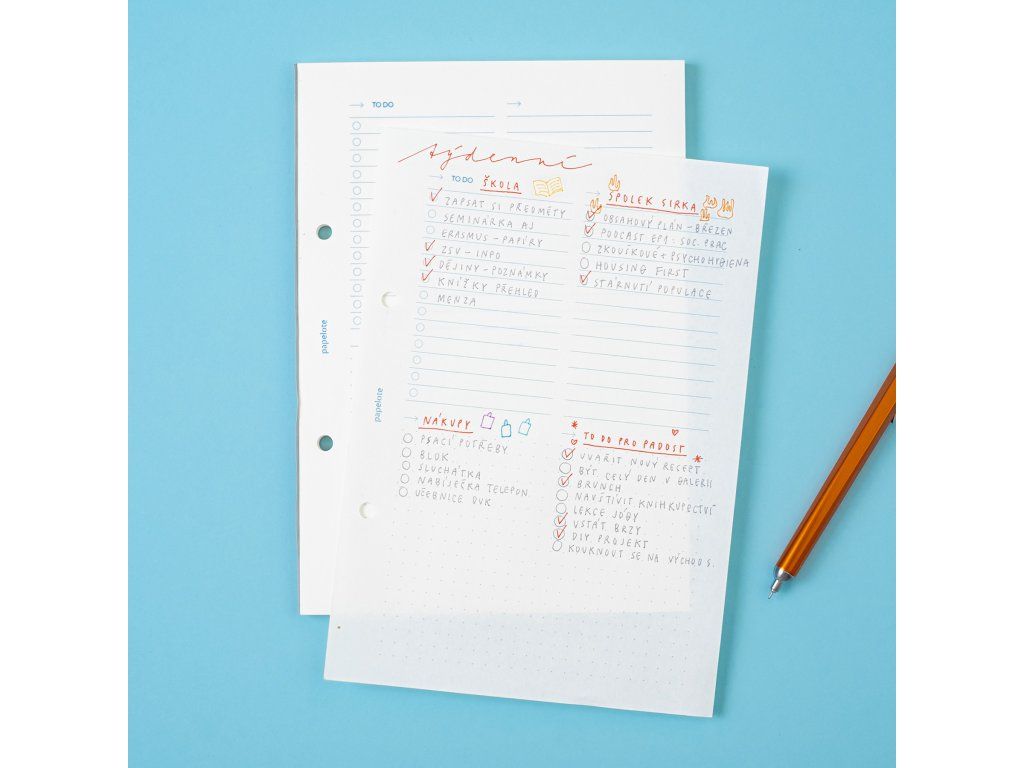 TO DO
papelote
týdenní
TO DO ŠKOLA
ZAPSAT SI PŘEDMĚTY
SEMINÁRKA AJ
ERASMUS - PAPÍRY
ZSV - INFO
DĚJINY - POZNÁMKY
KNÍŽKY PŘEHLED
MENZA
SPOLEK SIRKA
OBSAHOVÝ PLÁN - BŘEZEN
PODCAST EP1: SOC. PRAC
ZKOUŠKOVÉ + PSYCHOHYGIENA
HOUSING FIRST
STÁRNUTÍ POPULACE
papelote
NÁKUPY
PSACÍ POTŘEBY
BLOK
SLUCHÁTKA
NABÍJEČKA TELEFON
UČEBNICE
TO DO PRO RADOST
UVAŘIT NOVÝ RECEPT
BÝT CELÝ DEN V GALERII
BRUNCH
NAVŠTÍVIT KNIHKUPECTVÍ
LEKCE JÓGY
VSTÁT BRZY
DIY PROJEKT
KOUKNOUT SE NA VÝCHOD S.